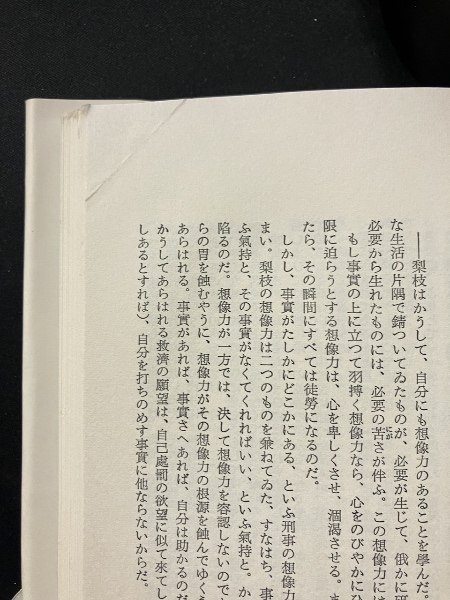 ――梨枝はかうして、自分にも想像力のあることを學んだ。
な生活の片隅で錆ついてゐたものが、必要が生じて、俄かに研
必要から生れたものには、必要の苦さが伴ふ。この想像力には
にが
もし事實の上に立つて羽搏く想像力なら、心をのびやかにひ
限に迫らうとする想像力は、心を卑しくさせ、涸渇させる。ま
たら、その瞬間にすべては徒勞になるのだ。
しかし、事實がたしかにどこかにある、といふ刑事の想像力
まい。梨枝の想像力は二つのものを兼ねてゐた、すなはち、事
ふ氣持と、その事實がなくてくれればいい、といふ氣持と。か
陷るのだ。想像力が一方では、決して想像力を容認しないので
らの胃を蝕むやうに、想像力がその想像力の根源を蝕んでゆくえ
あらはれる。事實があれば、事實さへあれば、自分は助かるのだ
かうしてあらはれる救濟の願望は、自己處罰の欲望に似て來てし
しあるとすれば、自分を打ちのめす事實に他ならないからだ。